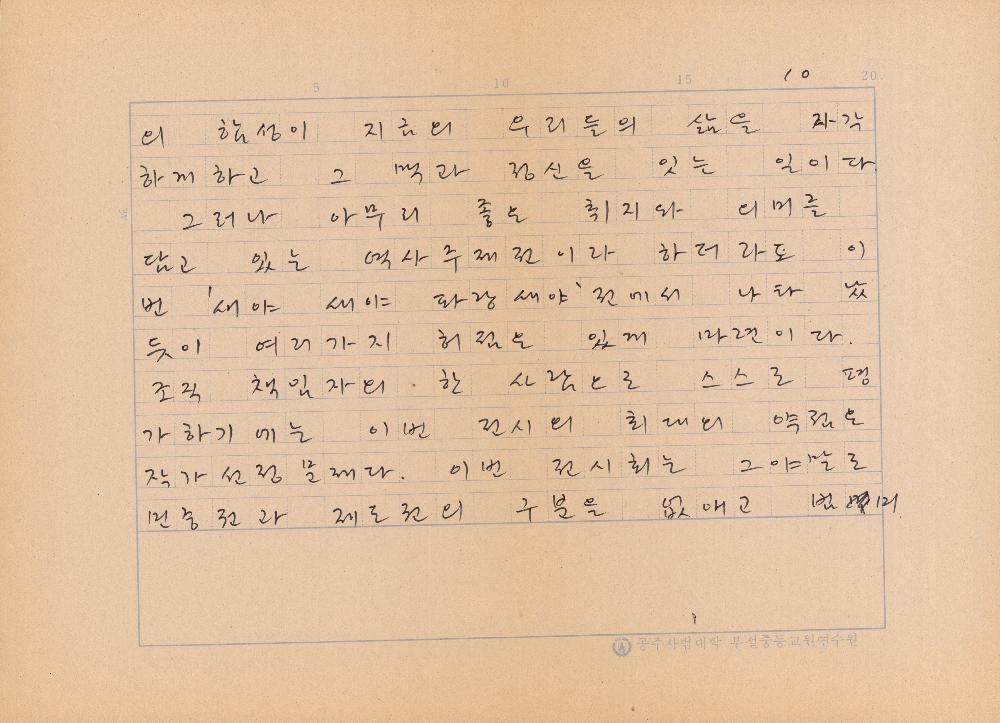 5 10 15 20
10
의 함성이 지금의 우리들의 삶을 자각
하게 하고 그 맥과 정신을 잇는 일이다.
그러나 아무리 좋은 취지와 의미를
담고 있는 역사주제전이라 하더라도 이
번 '새야 새야 파랑새야' 전에서 나타났
듯이 여러가지 허점은 있게 마련이다.
조직 책임자의 한 사람으로 스스로 평
가하기에는 이번 전시의 최대의 약점은
작가 선정 문제다. 이번 전시회는 그야말로
민중전과 제도전의 구분을 없애고 범
공주사범대학 부설중등교원연수원